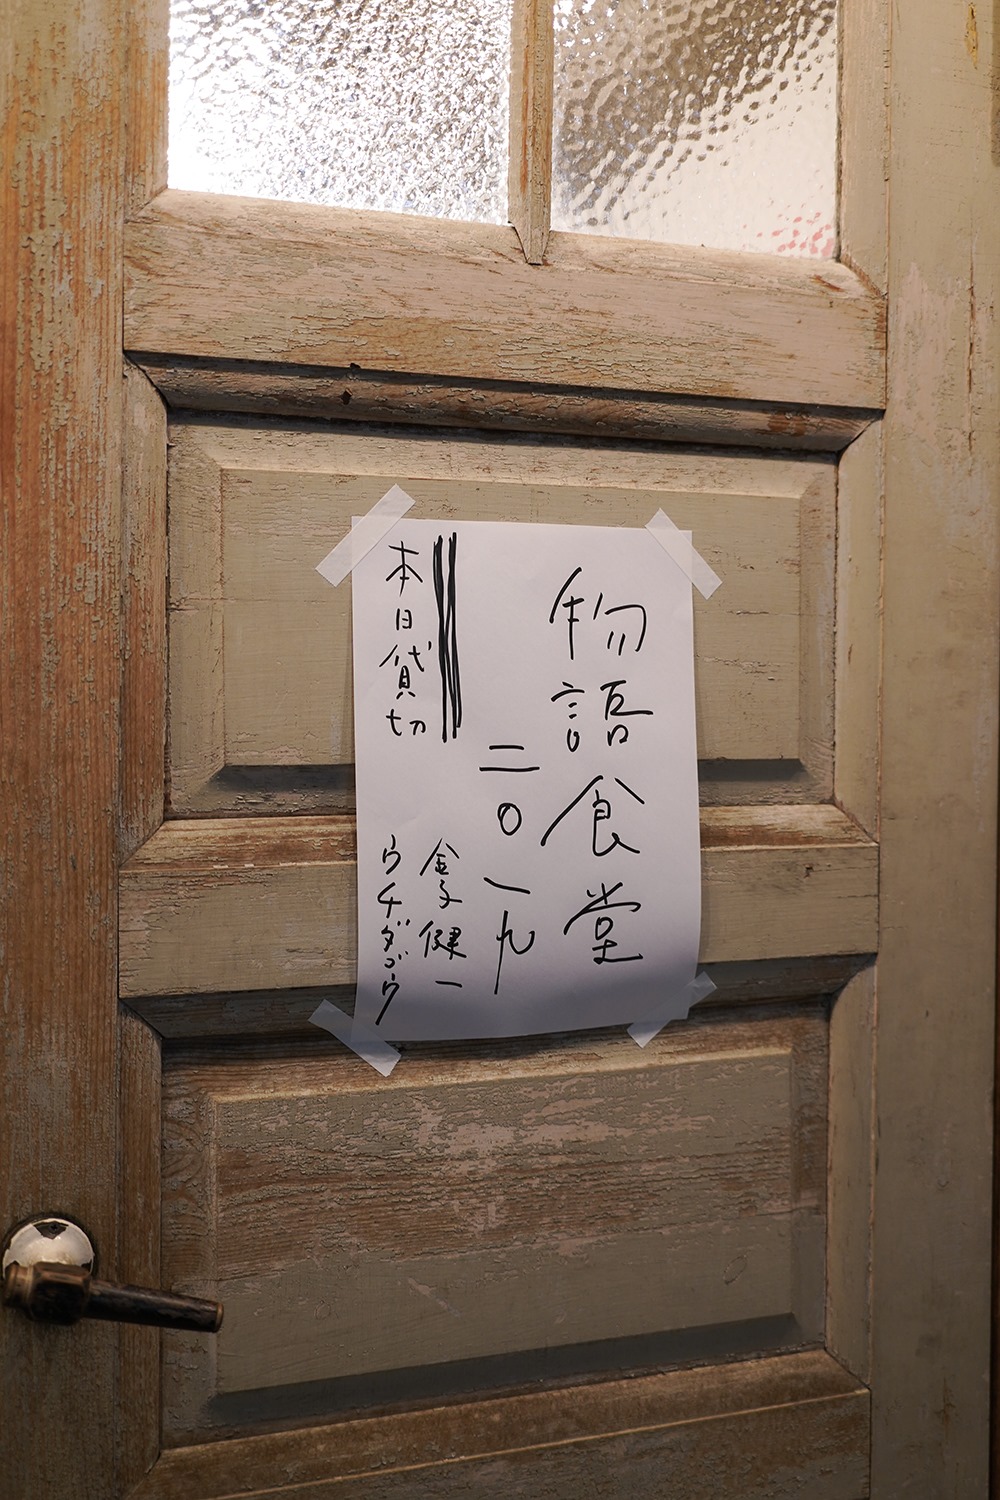 物語食堂
二〇一九
本日貸切
金子健一
ウチダゴウ